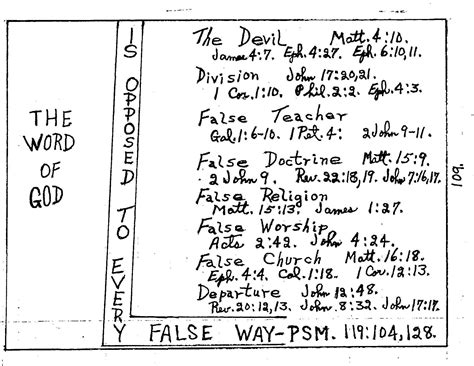 THE
WORD
OF
GOD
IS OPPOSED TO EVERY
The Devil Matt. 4:10.
James 4:7. Eph. 4:27. Eph. 6:10,11.
Division John 17:20,21.
1 Cor. 1:10. Phil. 2:2. Eph. 4:3.
False Teacher
Gal. 1:6-10. 1 Pet. 4: 2 John 9-11.
False Doctrine Matt. 15:9.
2 John 9. Rev. 22:18,19. John 7:16,17.
False Religion
Matt. 15:13. James 1:27.
False Worship
Acts 2:42. John 4:24.
False Church Matt. 16:18.
Eph. 4:4. Col. 1:18. 1 Cor. 12:13.
Departure John 12:48.
Rev. 20:12,13. John. 8:32. John 17:17.
FALSE WAY-PSM. 119:104,128.
109.